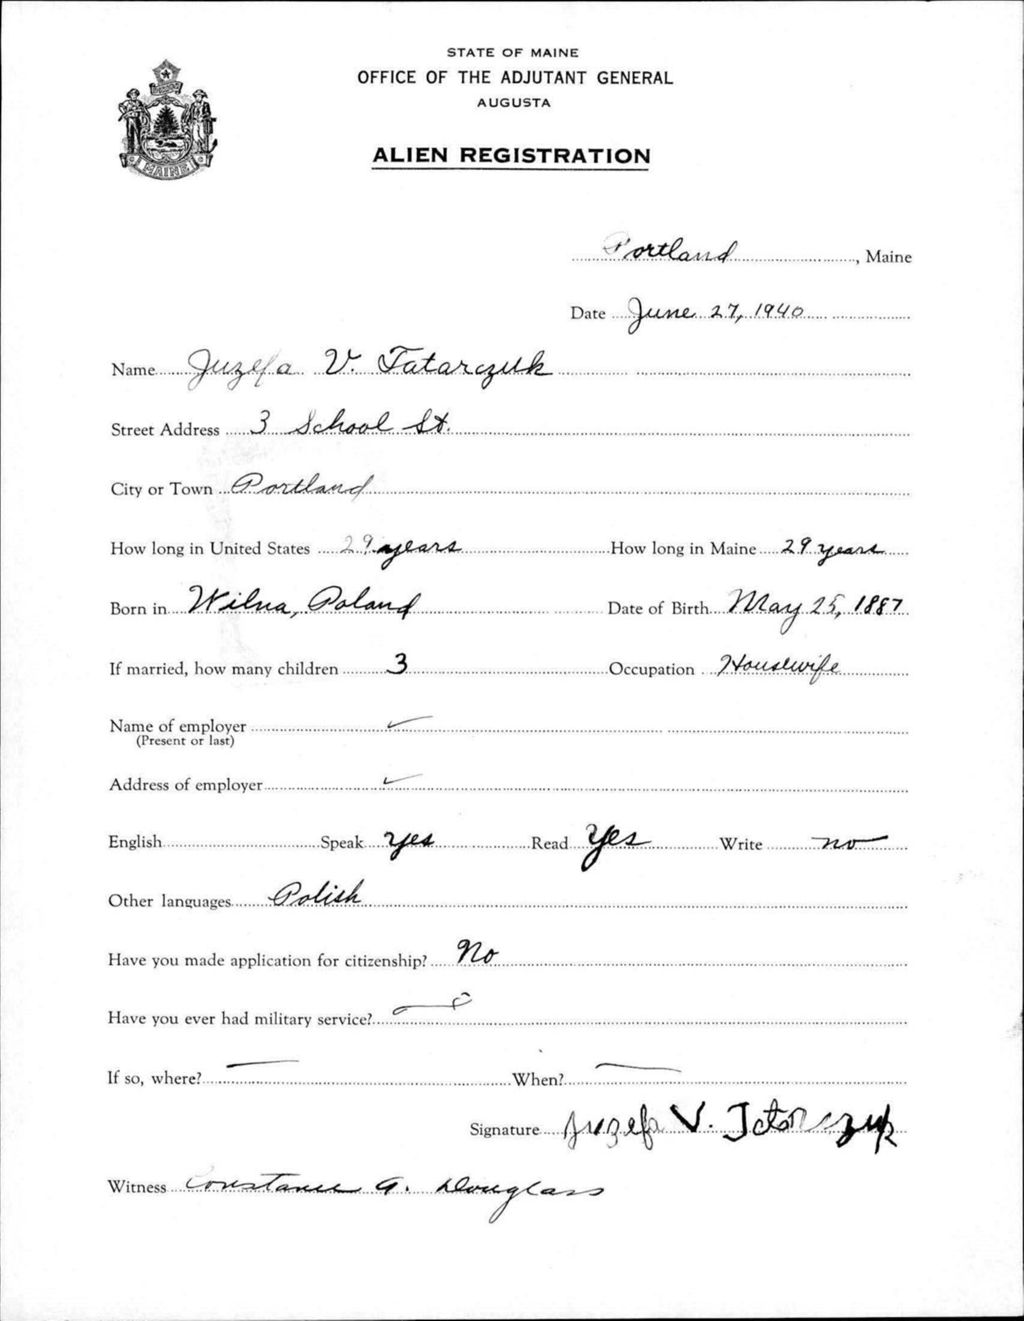 STATE OF MAINE
OFFICE OF THE ADJUTANT GENERAL
AUGUSTA
ALIEN REGISTRATION
MAINE
Portland, Maine
Date June 27, 1940
Name Juzefa V. Tatarczuk
Street Address 3 School St.
City or Town Portland
How long in United States 29 years How long in Maine 29 years
Born in Wilna, Poland Date of Birth May 25, 1887
If married, how many children 3 Occupation Housewife
Name of employer
(Present or last)
Address of employer
English Speak yes Read Yes Write no
Other languages Polish
Have you made application for citizenship? No
Have you ever had military service?
If so, where? When?
Signature Juzefa V. Tatarczuk
Witness Constance G. Douglass